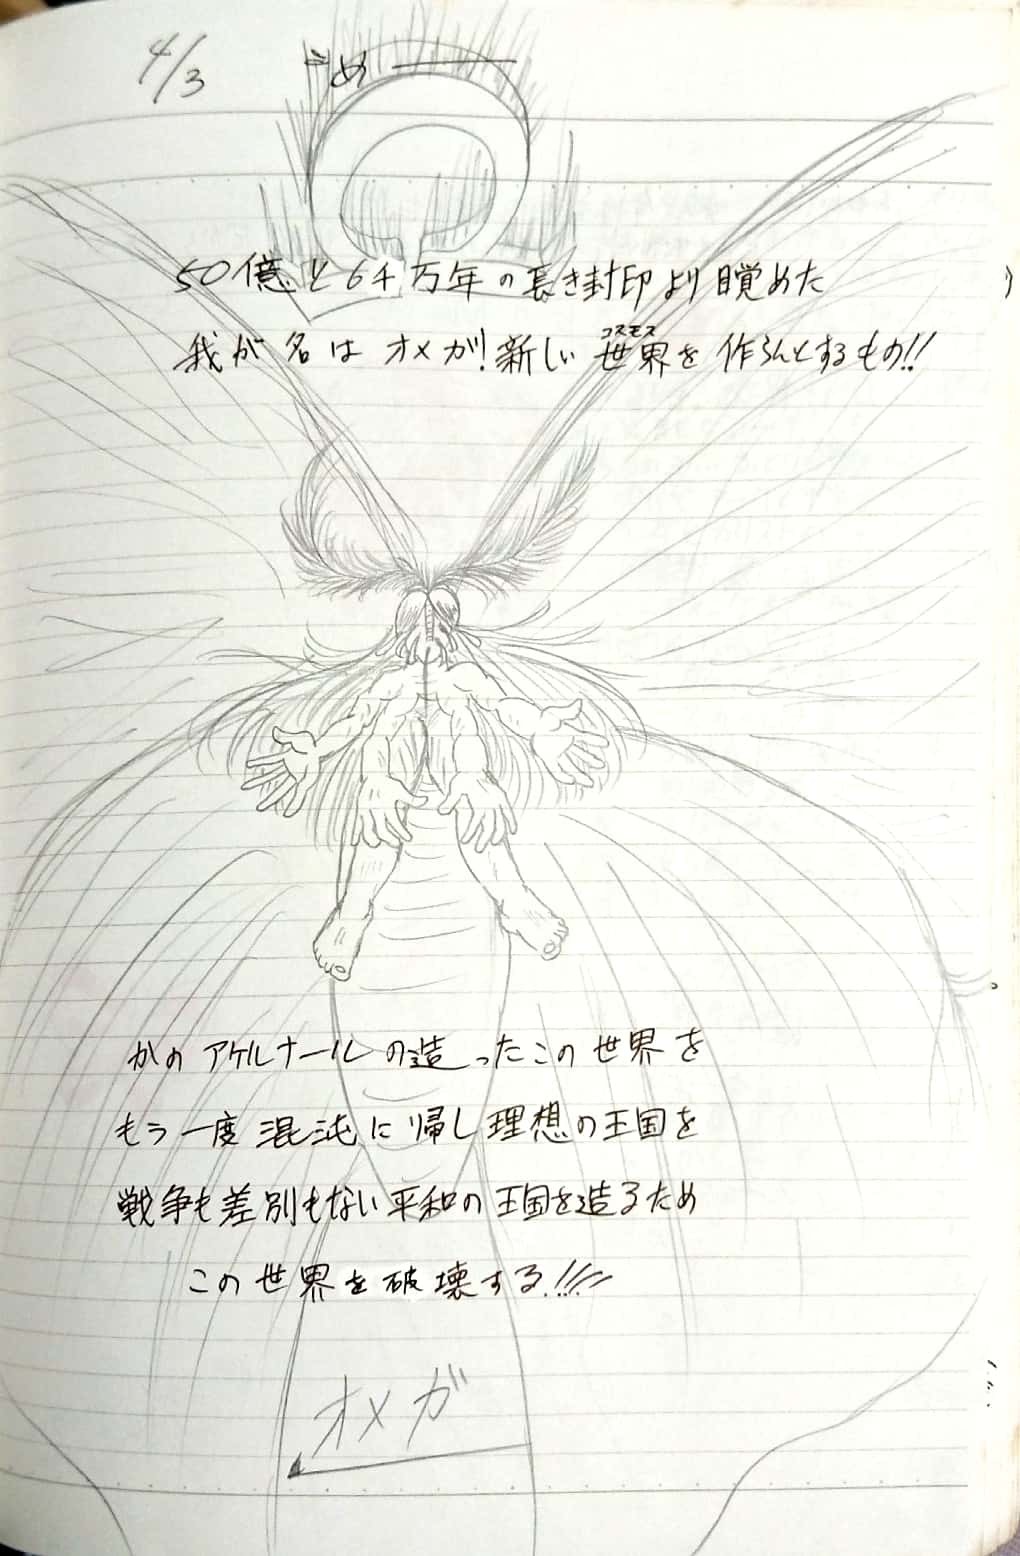 4/3
50億と6千万年の長き封印より目覚めた
我が名はオメガ!新しい世界を作らんとするもの!!
コスモス
かのアケルナールの造ったこの世界を
もう一度混沌に帰し理想の王国を
戦争も差別もない平和の王国を造るため
この世界を破壊する!!!!
オメガ